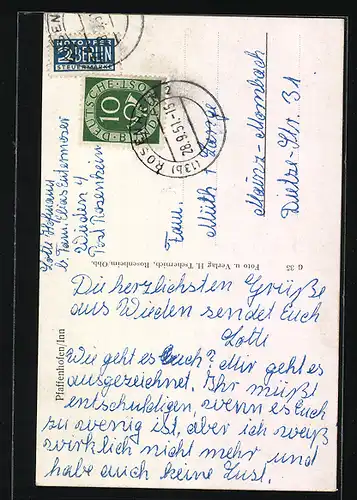 NOTOPFER
2 BERLIN
STEUERMARKE
DEUTSCHE POST
10
(13b) ROSENHEIM 2
28.9.51.-15
Lotti Hofmann
b. Fam. Elias Entermoser
Wieden 4
Post Rosenheim
Fam.
Müth
Mainz-Mombach
Dietze-Str. 31
G 35 Foto u. Verlag H. Tschernich, Rosenheim/Obb.
Pfaffenhofen/Inn
Die herzlichsten Grüße
aus Wieden sendet Euch
Lotti
Wie geht es Euch? Mir geht es
ausgezeichnet. Ihr müßt
entschuldigen, wenn es Euch
zu wenig ist, aber ich weiß
wirklich nicht mehr und
habe auch keine Lust.